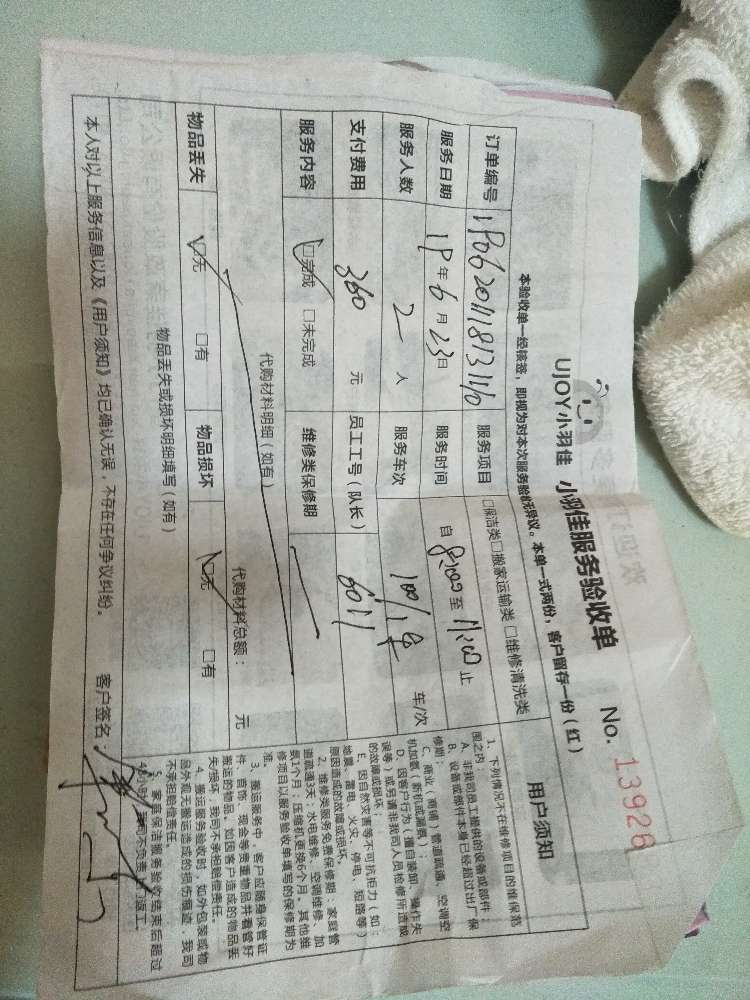 UJOY小羽佳 小羽佳服务验收单 No. 13926
本验收单一经核签，即视为对本次服务验收无异议。本单一式两份，客户留存一份（红）
订单编号 服务项目 □保洁类□搬家运输类 □维修清洗类
服务日期 19年6月23日 服务时间 自8:00至11:00止
服务人数 2人 服务车次 车/次
支付费用 360元 员工工号（队长） 6011
服务内容 □完成 □未完成 维修类保修期
代购材料明细（如有） 代购材料总额： 元
物品丢失 □无 □有 物品损坏 □无 □有
物品丢失或损坏明细填写（如有）
本人对以上服务信息以及《用户须知》均已确认无误，不存在任何争议纠纷。 客户签名：
用户须知
1. 下列情况不在维修项目的维保范
围之内：
A. 非我司员工提供的设备或部件；
B. 设备或部件本身已经超过出厂保
修期；
C. 商业（商铺）管道疏通、空调空
机加氨（新机或漏氨）；
D. 因客户行为（擅自装卸、操作失
误等）或另请非我司人员检修所造成
的故障或损坏。
E. 因自然灾害等不可抗拒力（如：
地震、雷电、火灾、停电、短路等）
原因造成的故障或损坏。
2. 维修类服务免费保修期：家庭管
道疏通3天；水电维修、空调维修、加
氨1个月；压缩机更换6个月。其他维
修项目以服务验收单填写的保修期为
准。
3. 搬运服务中，客户应随身保管证
件、首饰、现金等贵重物品并看管好
搬运的物品。如因客户造成的物品丢
失损坏，我司不承担赔偿责任。
4. 搬运服务验收时，如外包装或物
品外观无搬运造成的损伤痕迹，我司
不承担赔偿责任。
5. 家庭保洁服务验收结束后超过
48小时，我司不负责上门返工。